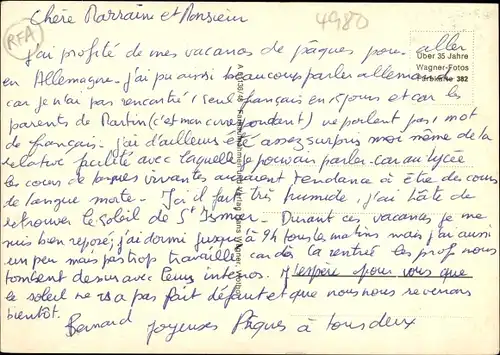 Chère Marraine et Monsieur
4980
RFA
J'ai profité de mes vacances de pâques pour aller
en Allemagne. J'ai pu aussi beaucoup parler allemand
car je n'ai pas rencontré 1 seul français en 15 jours et car les
parents de Martin (c'est mon correspondant) ne parlent pas 1 mot
de français. J'ai d'ailleurs été assez surpris moi même de la
relative facilité avec laquelle je pouvais parler car au lycée
les cours de langues vivantes auraient tendance à être des cours
de langue morte. Ici il fait très humide, j'ai hâte de
retrouver le soleil de St Ismier. Durant ces vacances je me
suis bien reposé; j'ai dormi jusque à 9h tous les matins mais j'ai aussi
un peu mais pas trop travaillé car dès la rentrée les prof nous
tombent dessus avec leurs interros. J'espère pour vous que
le soleil ne vous a pas fait défaut et que nous nous reverrons
bientôt.
Bernard Joyeuses Pâques à tous deux
Über 35 Jahre
Wagner-Fotos
Farbkarte 382